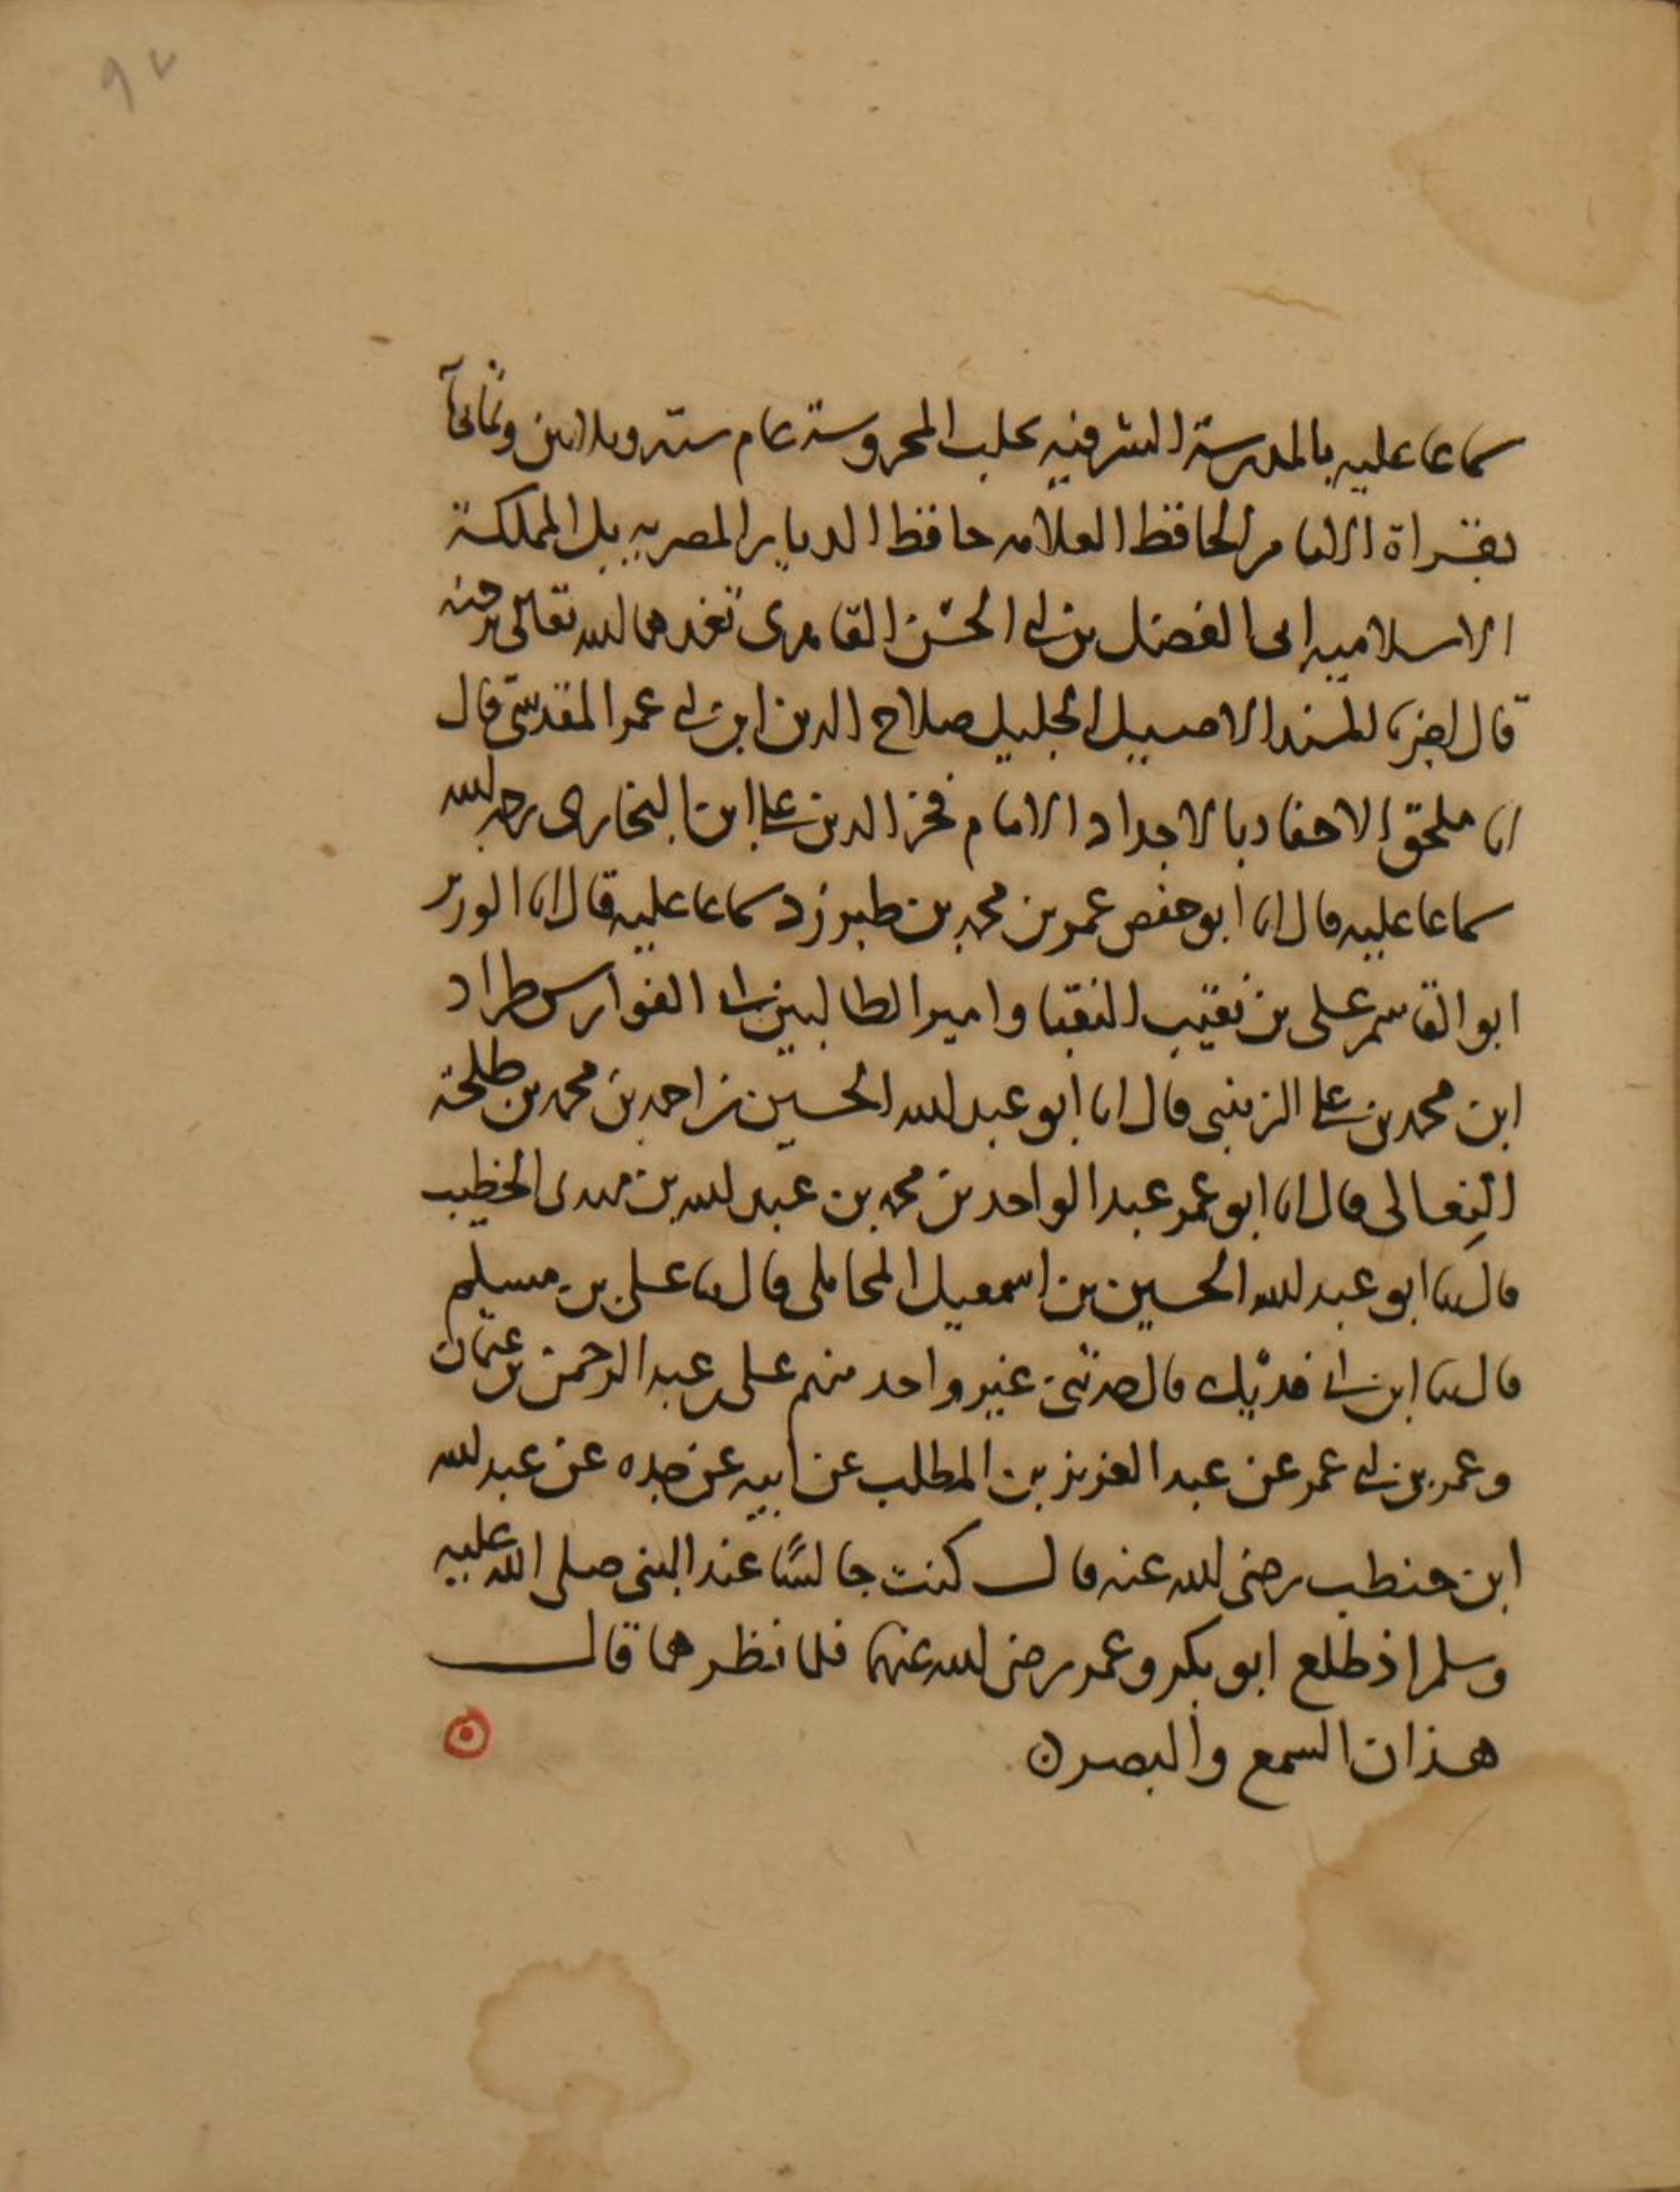 ٩٧
سماعا عليه بالمدرسة الشرفيه بحلب المحروسة عام ستة وثلاثين وثمانمائة
بقراة الامام الحافظ العلامه حافظ الديار المصريه بل المملكة
الاسلاميه ابى الفضل بن ابى الحسن القاهرى تغمدهما الله تعالى برحمته
قال اخبرنا المسند الاصيل الجليل صلاح الدين ابن ابى عمر المقدسى قال
انا ملحق الاحفاد بالاجداد الامام فخر الدين على ابن البخارى رحمه الله
سماعا عليه قال انا ابو حفص عمر بن محمد بن طبرزد سماعا عليه قال انا الوزير
ابو القاسم على بن نقيب النقبا وامير الطالبين ابى الفوارس طراد
ابن محمد بن على الزينبى قال انا ابو عبد الله الحسين بن احمد بن محمد بن طلحة
النِعالى قال انا ابو عمر عبد الواحد بن محمد بن عبد الله بن مهدى الخطيب
قال ثنا ابو عبد الله الحسين بن اسمعيل المحاملى قال ثنا على بن مسلم
قال ثنا ابن ابى فديك قال حدثنى غير واحد منهم على بن عبد الرحمن بن عثمان
وعمر بن ابى عمر عن عبد العزيز بن المطلب عن ابيه عن جده عن عبد الله
ابن حنطب رضى الله عنه قال كنت جالسًا عند النبى صلى الله عليه
وسلم اذ طلع ابو بكر وعمر رضى الله عنهما فلما نظرهما قال
هذان السمع والبصر ن